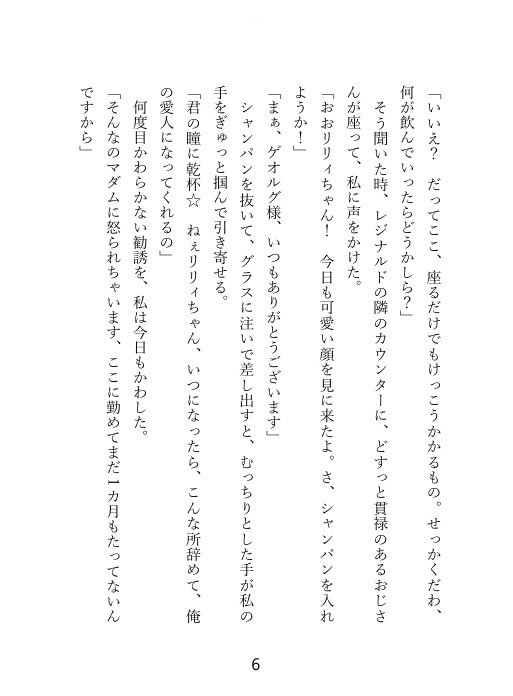 「いいえ？　だってここ、座るだけでもけっこうかかるもの。せっかくだわ、
何が飲んでいったらどうかしら？」
　そう聞いた時、レジナルドの隣のカウンターに、どすっと貫禄のあるおじさ
んが座って、私に声をかけた。
「おおリリィちゃん！　今日も可愛い顔を見に来たよ。さ、シャンパンを入れ
ようか！」
「まぁ、ゲオルグ様、いつもありがとうございます」
　シャンパンを抜いて、グラスに注いで差し出すと、むっちりとした手が私の
手をぎゅっと掴んで引き寄せる。
「君の瞳に乾杯☆　ねぇリリィちゃん、いつになったら、こんな所辞めて、俺
の愛人になってくれるの」
　何度目かわからない勧誘を、私は今日もかわした。
「そんなのマダムに怒られちゃいます、ここに勤めてまだ１カ月もたってないん
ですから」
6